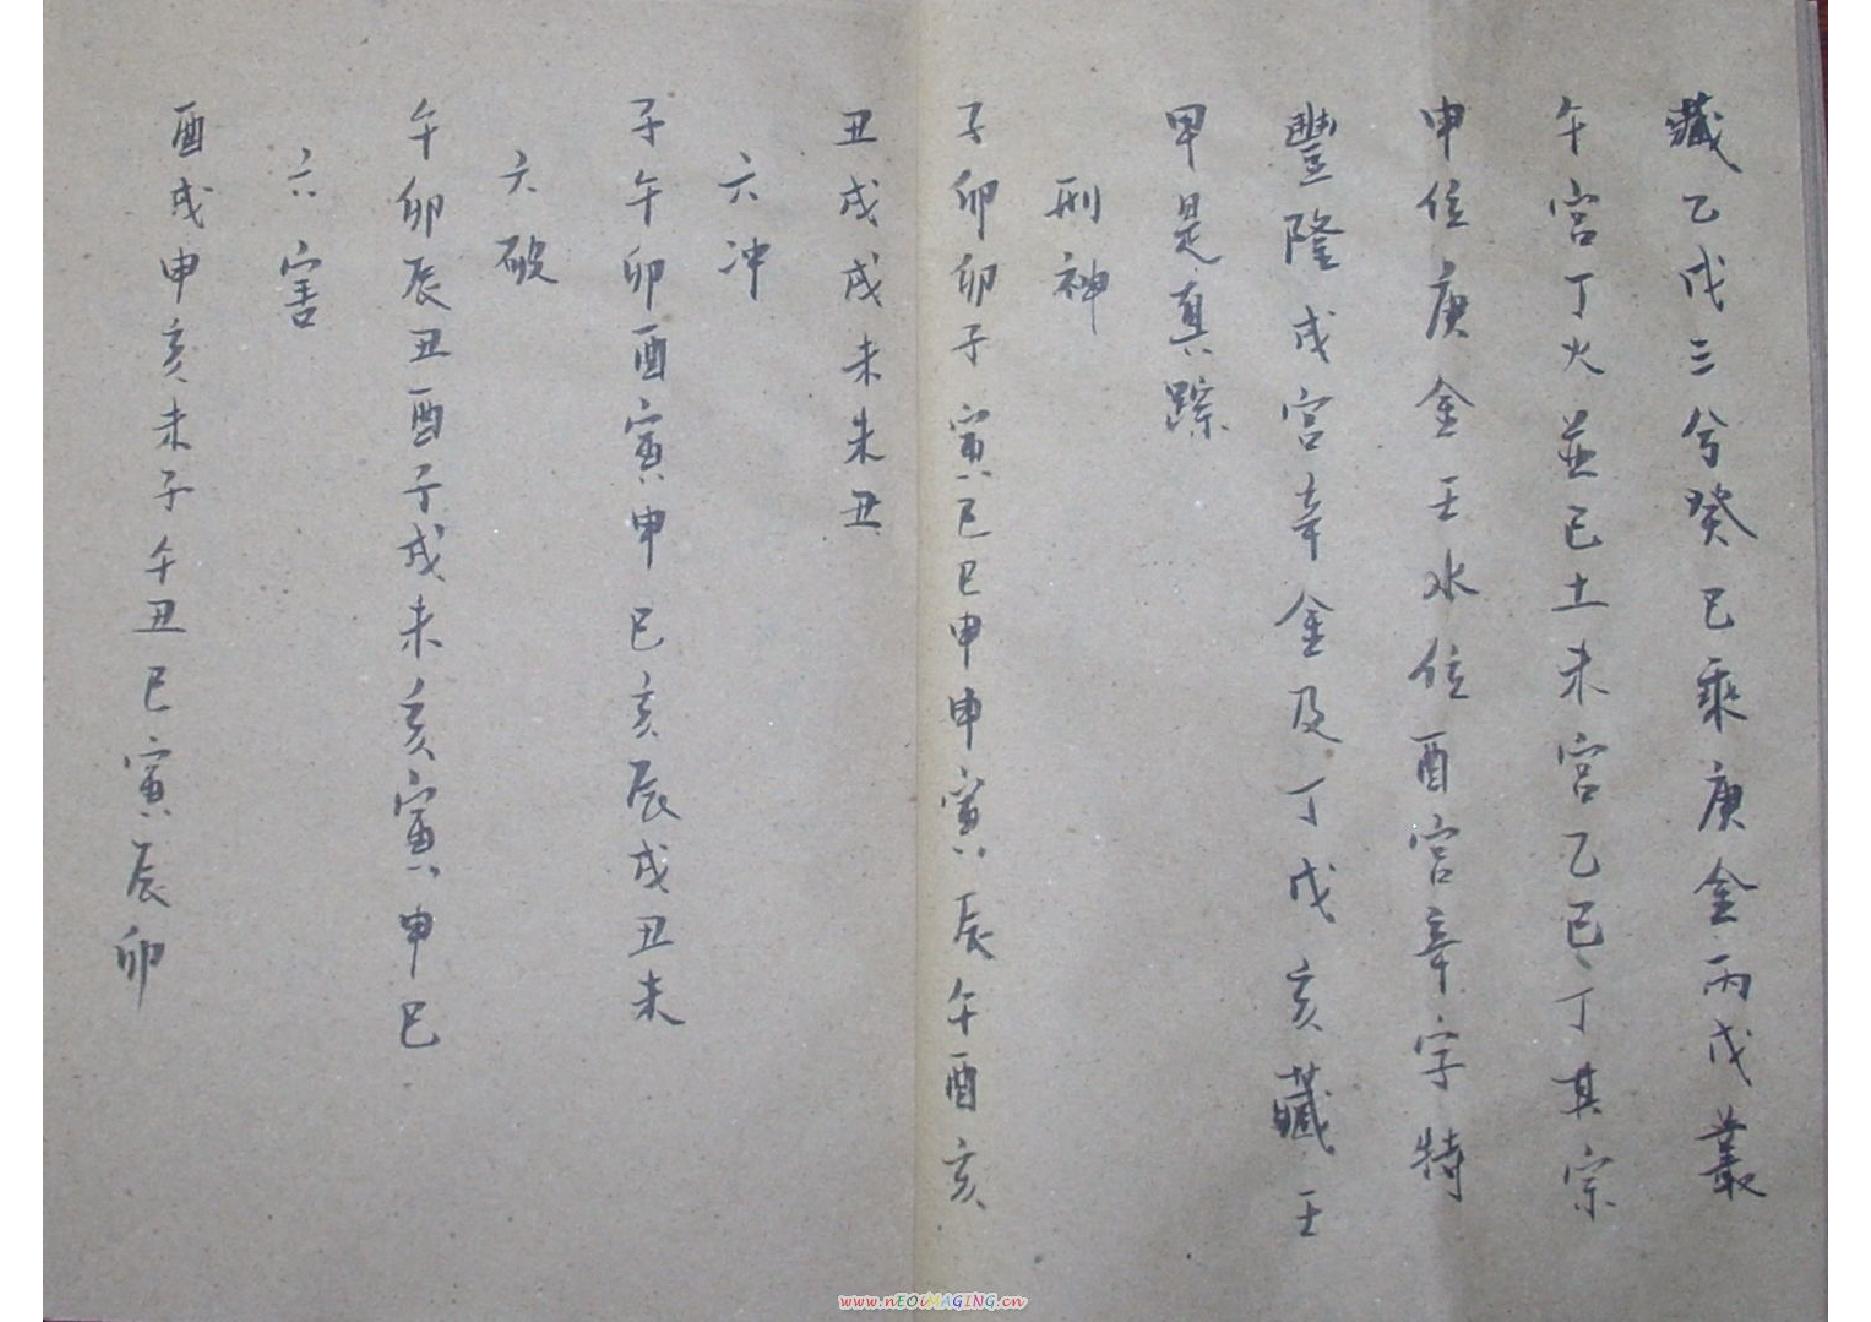 藏乙戊三兮癸巳乘庚金丙戊叢
午宮丁火並己土未宮乙己丁其宗
申位庚金壬水位酉宮辛字特
豐隆戌宮辛金及丁戊亥藏壬
甲是真踪
刑神
子卯卯子寅巳巳申申寅辰午酉亥
丑戌戌未未丑
六冲
子午卯酉寅申巳亥辰戌丑未
六破
午卯辰丑酉子戌未亥寅申巳
六害
酉戌申亥未子午丑巳寅辰卯
www.nEOiMAGING.cn